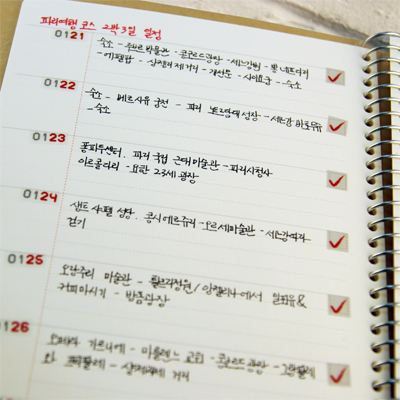 파리여행 코스 2박3일 일정
0121
숙소 - 루브르 박물관 - 콩코르드광장 - 세느강변 - 퐁네프다리
- 에펠탑 - 샹젤리제거리 - 개선문 - 사이요궁 - 숙소
0122
숙소 - 베르사유 궁전 - 파리 노트르담 성당 - 세느강 바토무슈
- 숙소
0123
퐁피두센터. 파리 국립 근대 미술관 - 파리시청사
0124
생트 샤펠 성당. 콩시에르쥬리 - 오르세미술관 - 세느강따라
걷기
0125
오랑주리 미술관 - 튈르리정원 / 앙젤리나에서 밀푀유&
커피마시기 - 방돔광장
0126
오페라 가르니에 - 마들렌느 교회 - 콩코르드 광장 - 그랑팔레
와 쁘띠팔레 - 샹젤리제 거리